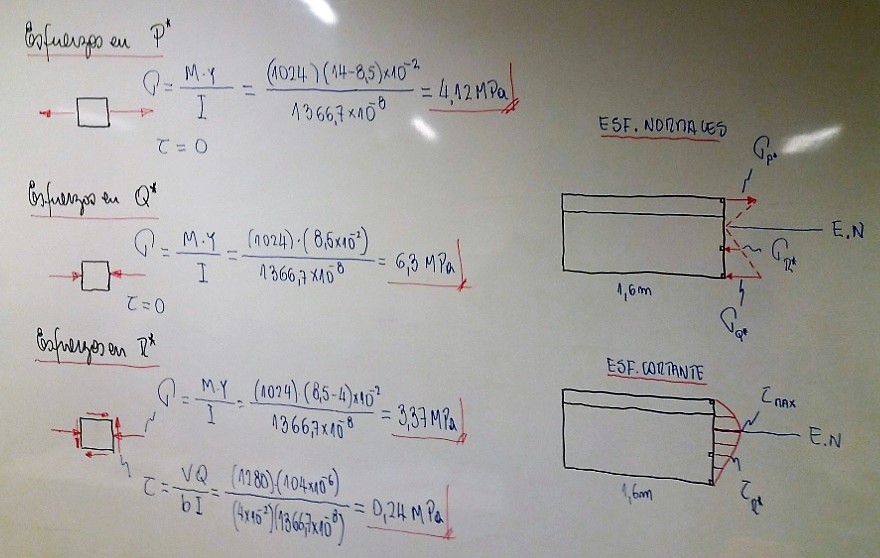 Esfuerzos en P*
σ = M·Y / I = (1024)(14-8,5)×10⁻² / 1366,7×10⁻⁸ = 4,12 MPa
τ = 0
Esfuerzos en Q*
σ = M·Y / I = (1024)·(8,5×10⁻²) / 1366,7×10⁻⁸ = 6,3 MPa
τ = 0
Esfuerzos en R*
σ = M·Y / I = (1024)(8,5-4)×10⁻² / 1366,7×10⁻⁸ = 3,37 MPa
τ = VQ / bI = (1280)·(104×10⁻⁶) / (4×10⁻²)(1366,7×10⁻⁸) = 0,24 MPa
ESF. NORMALES
σP*
E.N
σR*
1,6m
σQ*
ESF. CORTANTE
τMAX
E.N
1,6m
τR*